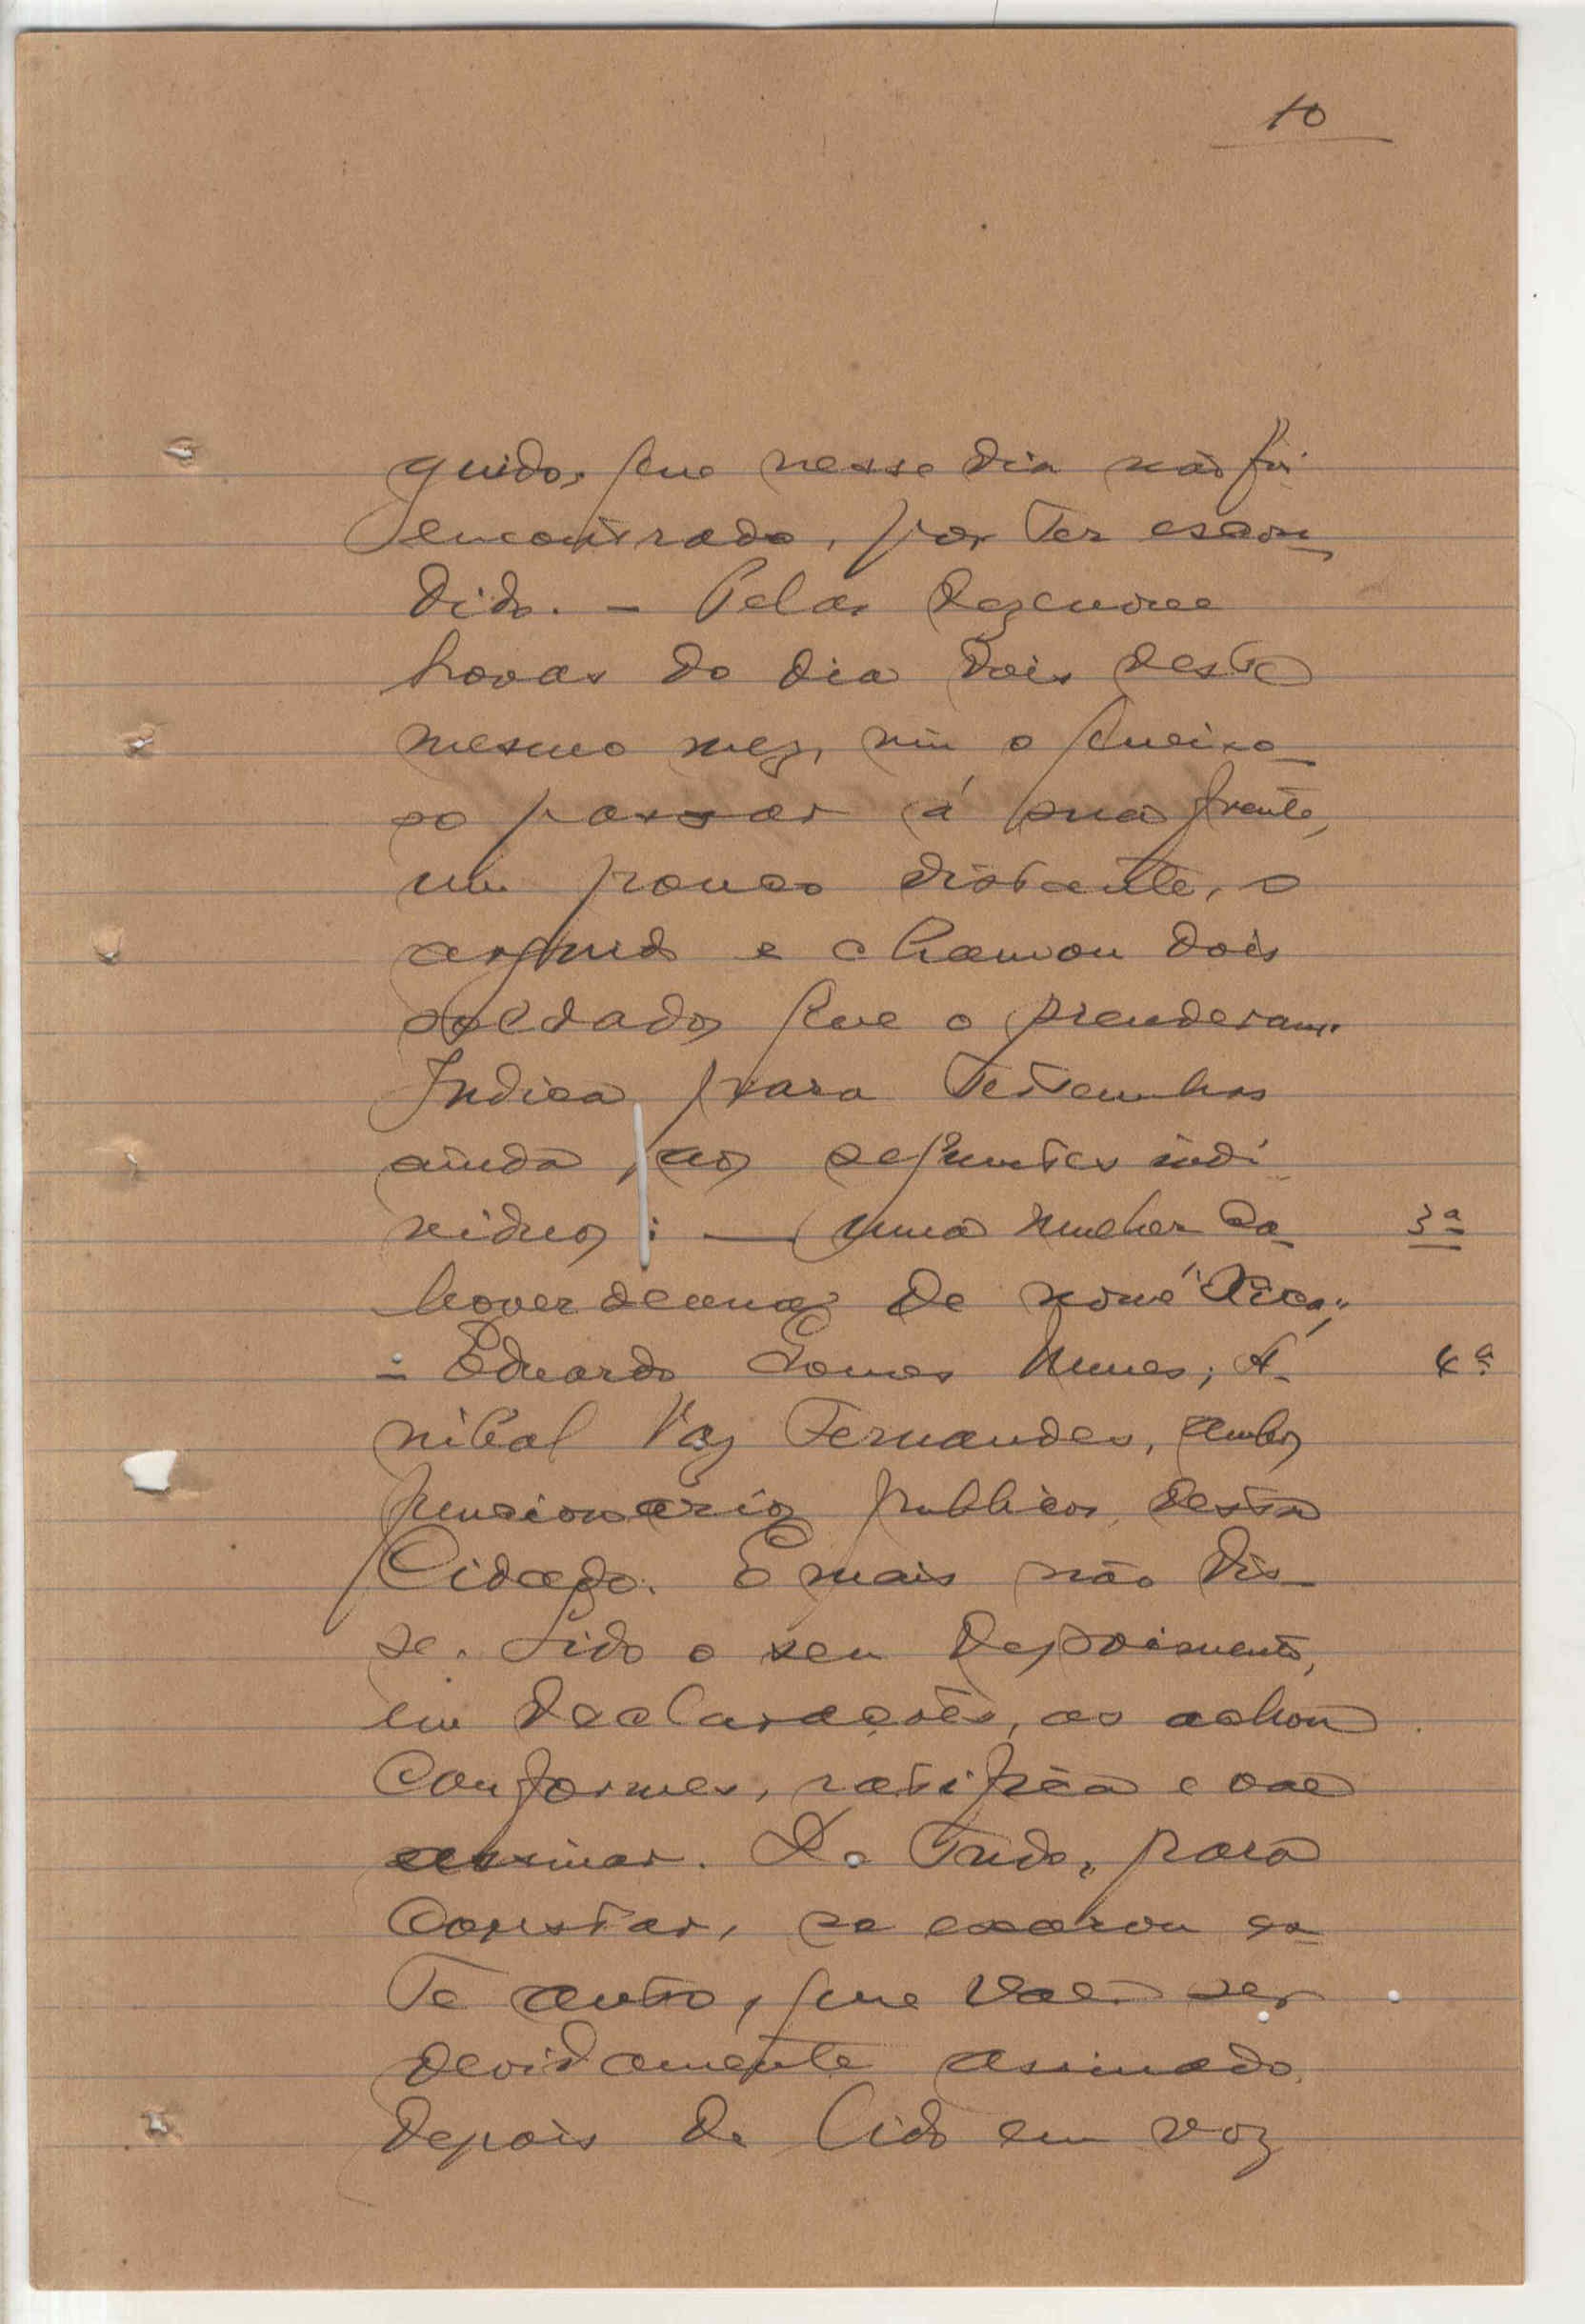 10
guido, que nesse dia não foi
encontrado, por ter escon
dido. - Pelas dezenove
horas do dia dois deste
mesmo mez, viu o queixo
so passar á sua frente,
um pouco distante, o
arguido e chamou dois
soldados que o prenderam.
Indica para testemunhas
ainda, aos seguintes indi
viduos: — uma mulher ca
boverdeana de nome
3ª
- Eduardo Gomes Nunes; A
4ª
nibal Vaz Fernandes, ambos
funcionarios publicos, desta
Cidade. E mais não dis
se. Lido o seu depoimento,
em declarações, as achou
conformes, ratifica e vae
assinar. De tudo, para
constar, se exarou es
te auto, que vae ser
devidamente assinado,
depois de lido em voz